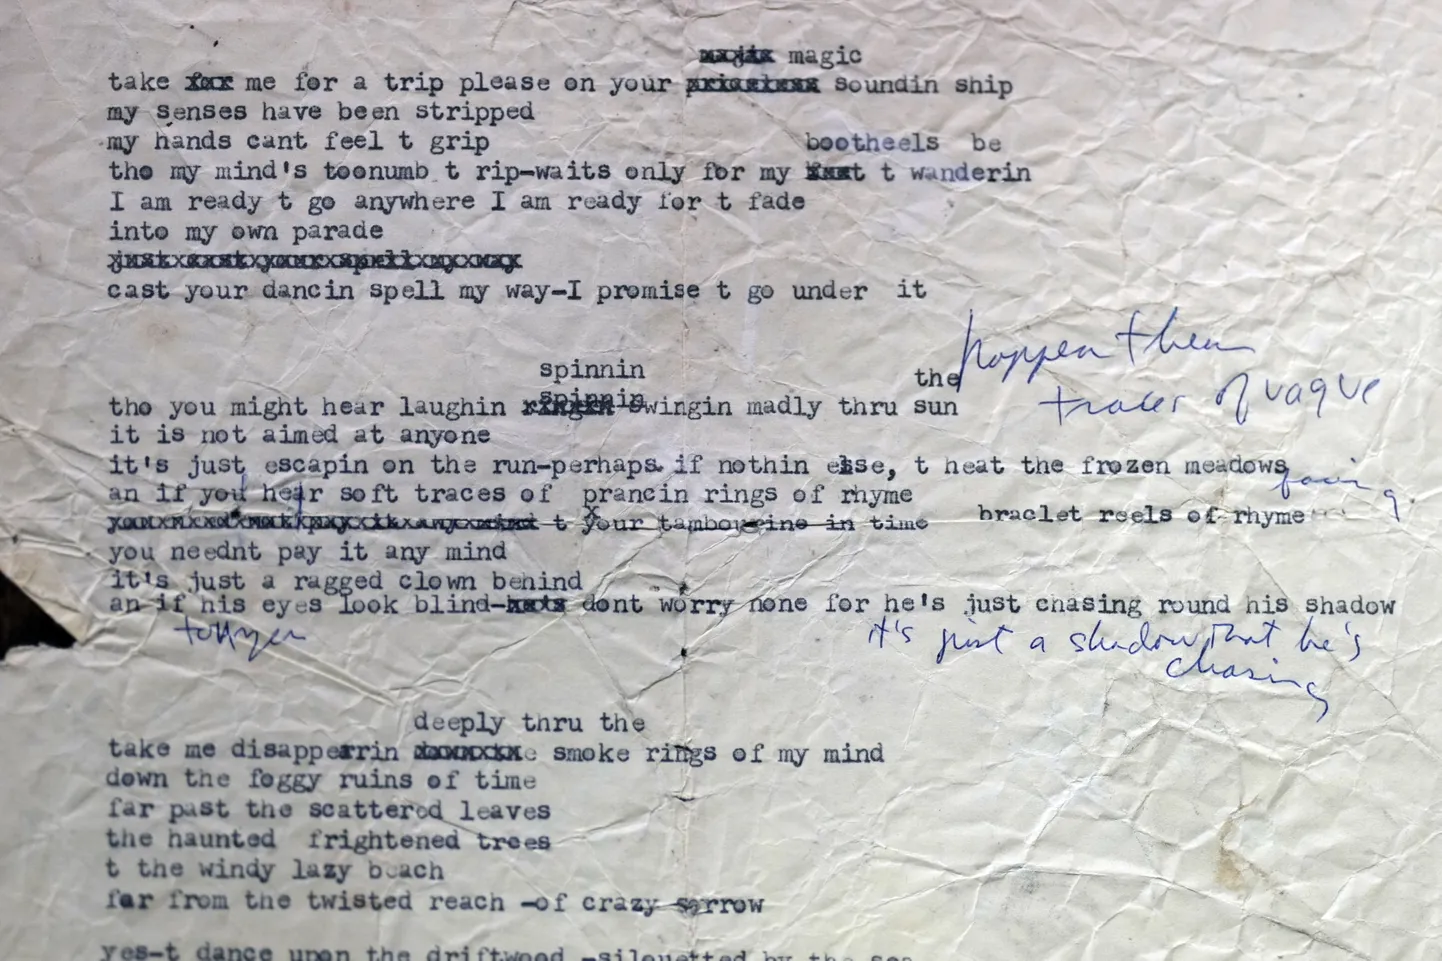 magic
take me for a trip please on your soundin ship
my senses have been stripped
my hands cant feel t grip
bootheels be
tho my mind's toonumb t rip-waits only for my t wanderin
I am ready t go anywhere I am ready for t fade
into my own parade
just cast your spell my way
cast your dancin spell my way-I promise t go under it
spinnin
the
spinnin
tho you might hear laughin swingin madly thru sun
of vague
it is not aimed at anyone
it's just escapin on the run-perhaps if nothin else, t heat the frozen meadows
an if you hear soft traces of prancin rings of rhyme
t your tambourine in time braclet reels of rhyme
you neednt pay it any mind
it's just a ragged clown behind
an if his eyes look blind- dont worry none for he's just chasing round his shadow
it's just a shadow that he's
chasing
deeply thru the
take me disapperrin smoke rings of my mind
down the foggy ruins of time
far past the scattered leaves
the haunted frightened trees
t the windy lazy beach
far from the twisted reach -of crazy sorrow
yes-t dance upon the driftwood -silouetted by the sea